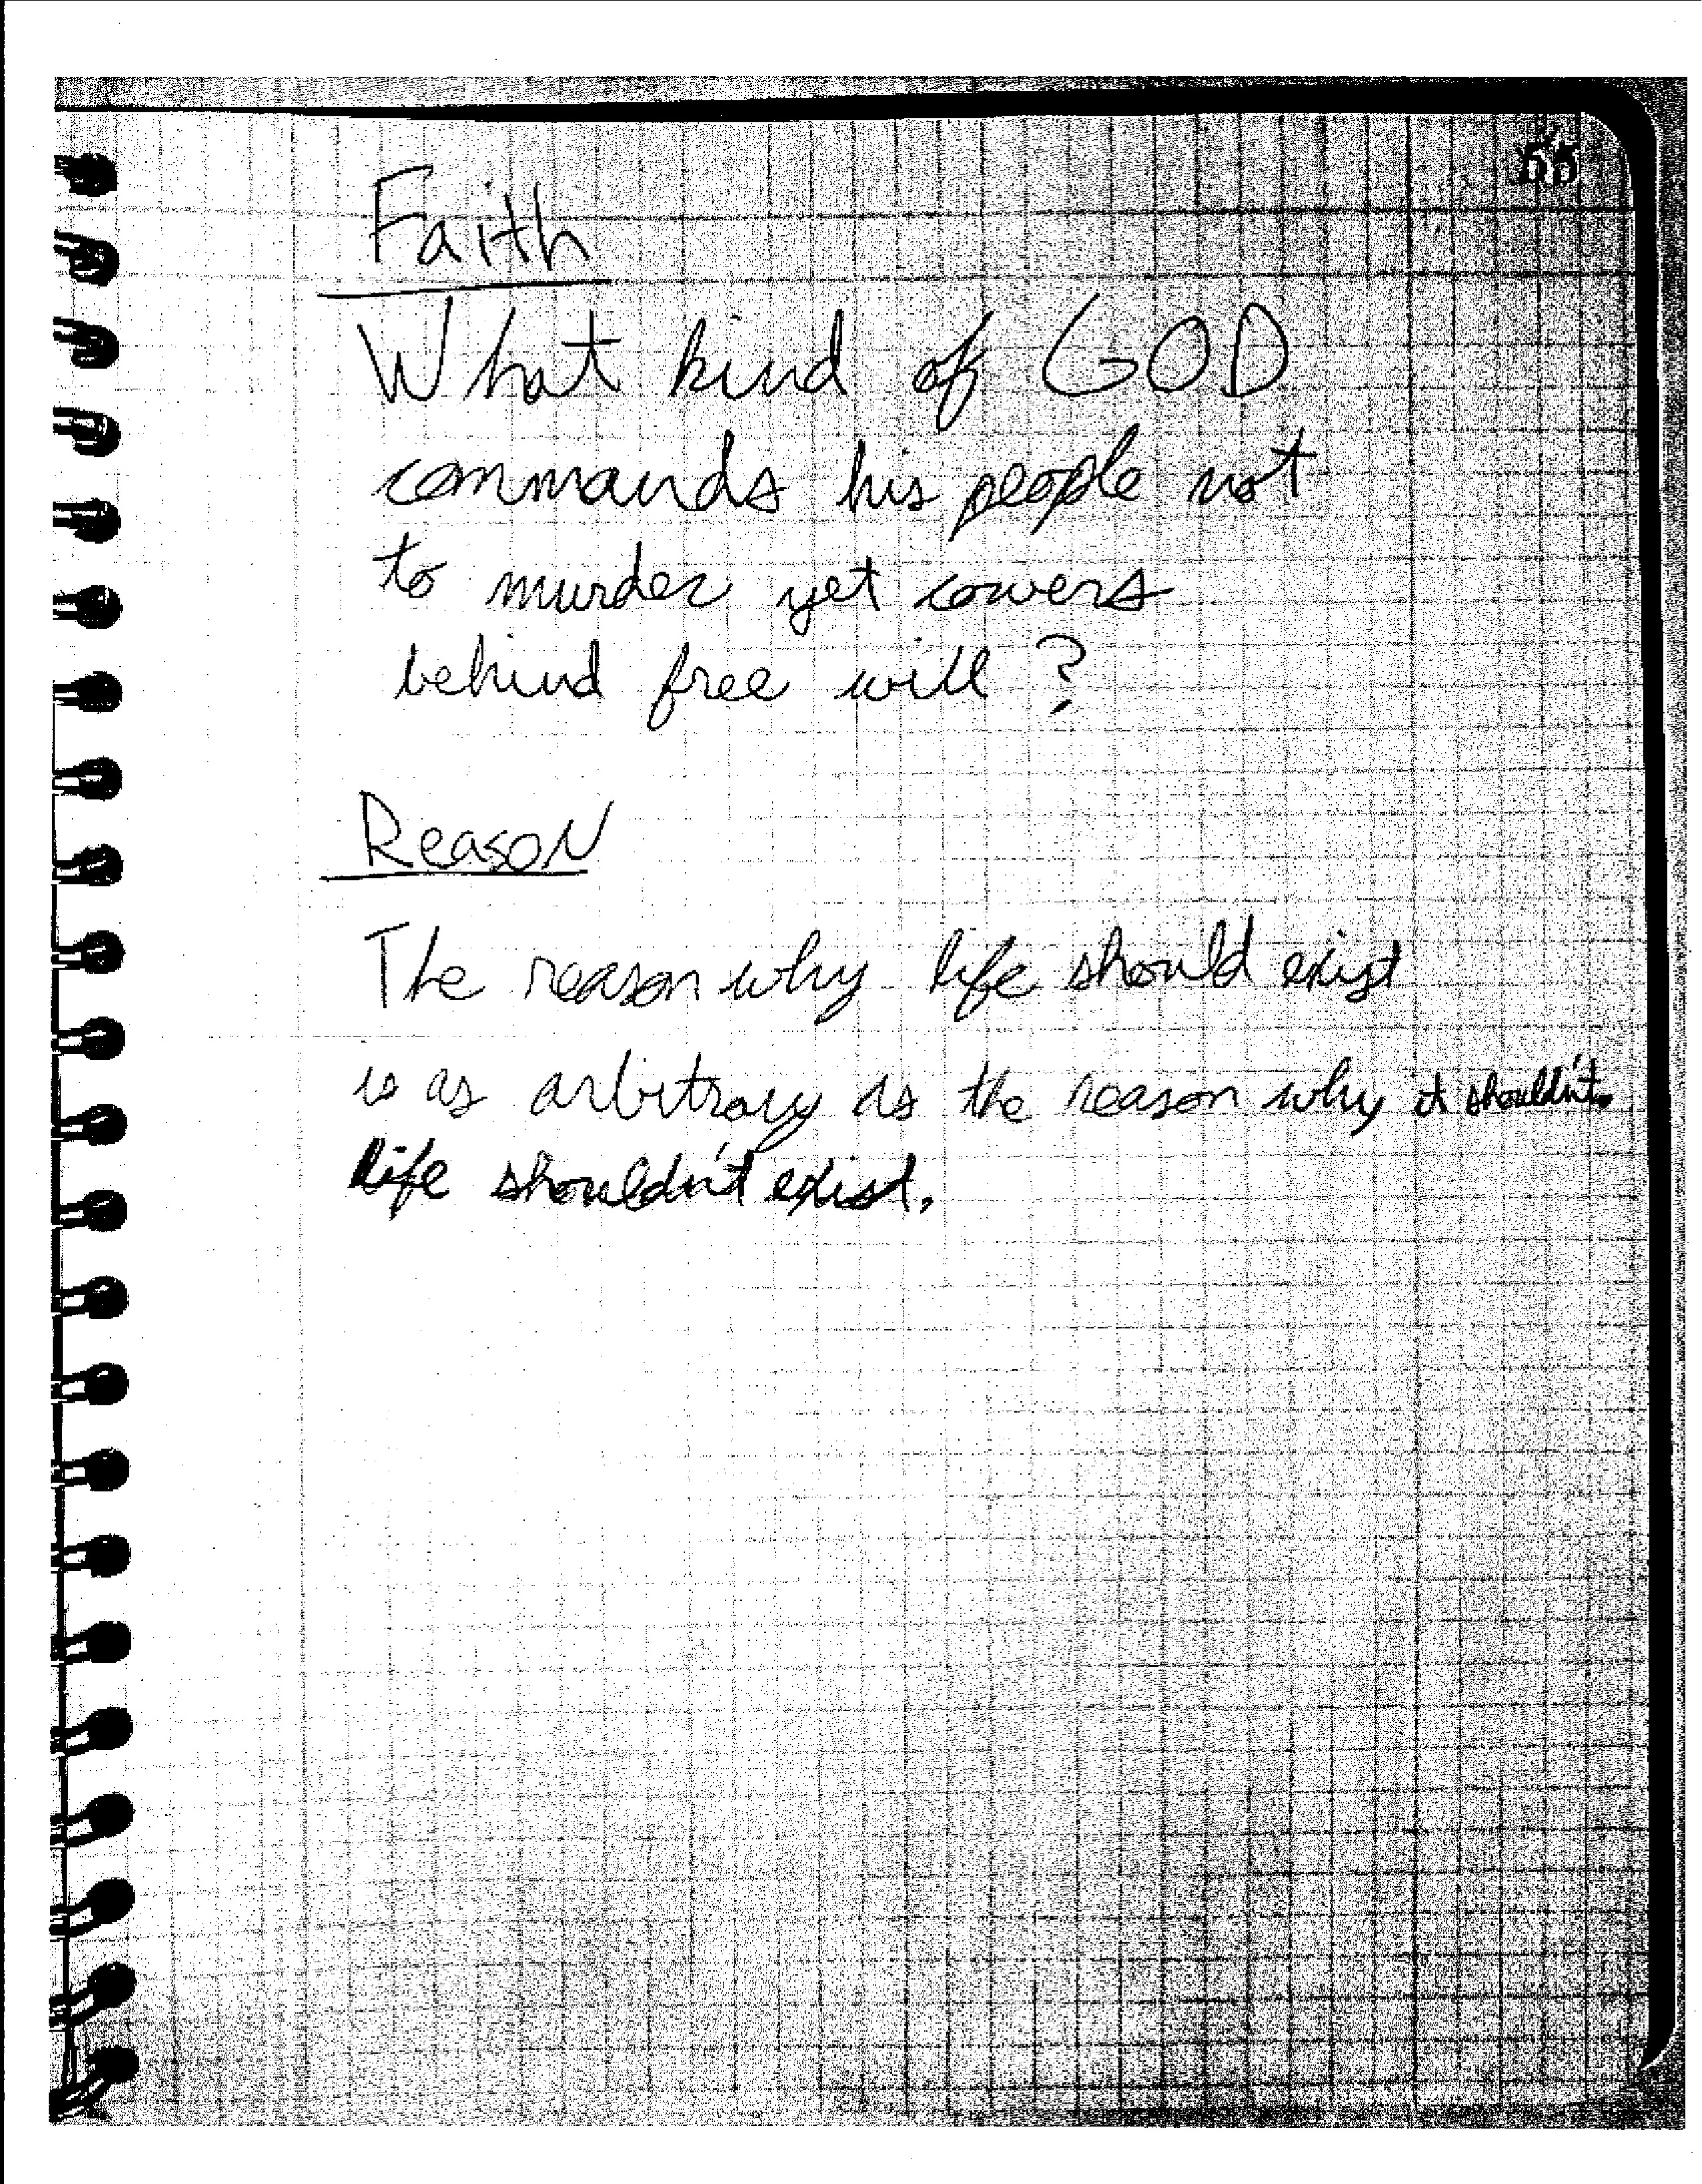 55
Faith
What kind of GOD
commands his people not
to murder yet cowers
behind free will?
Reason
The reason why life should exist
is as arbitrary as the reason why it shouldn't.
life shouldn't exist.